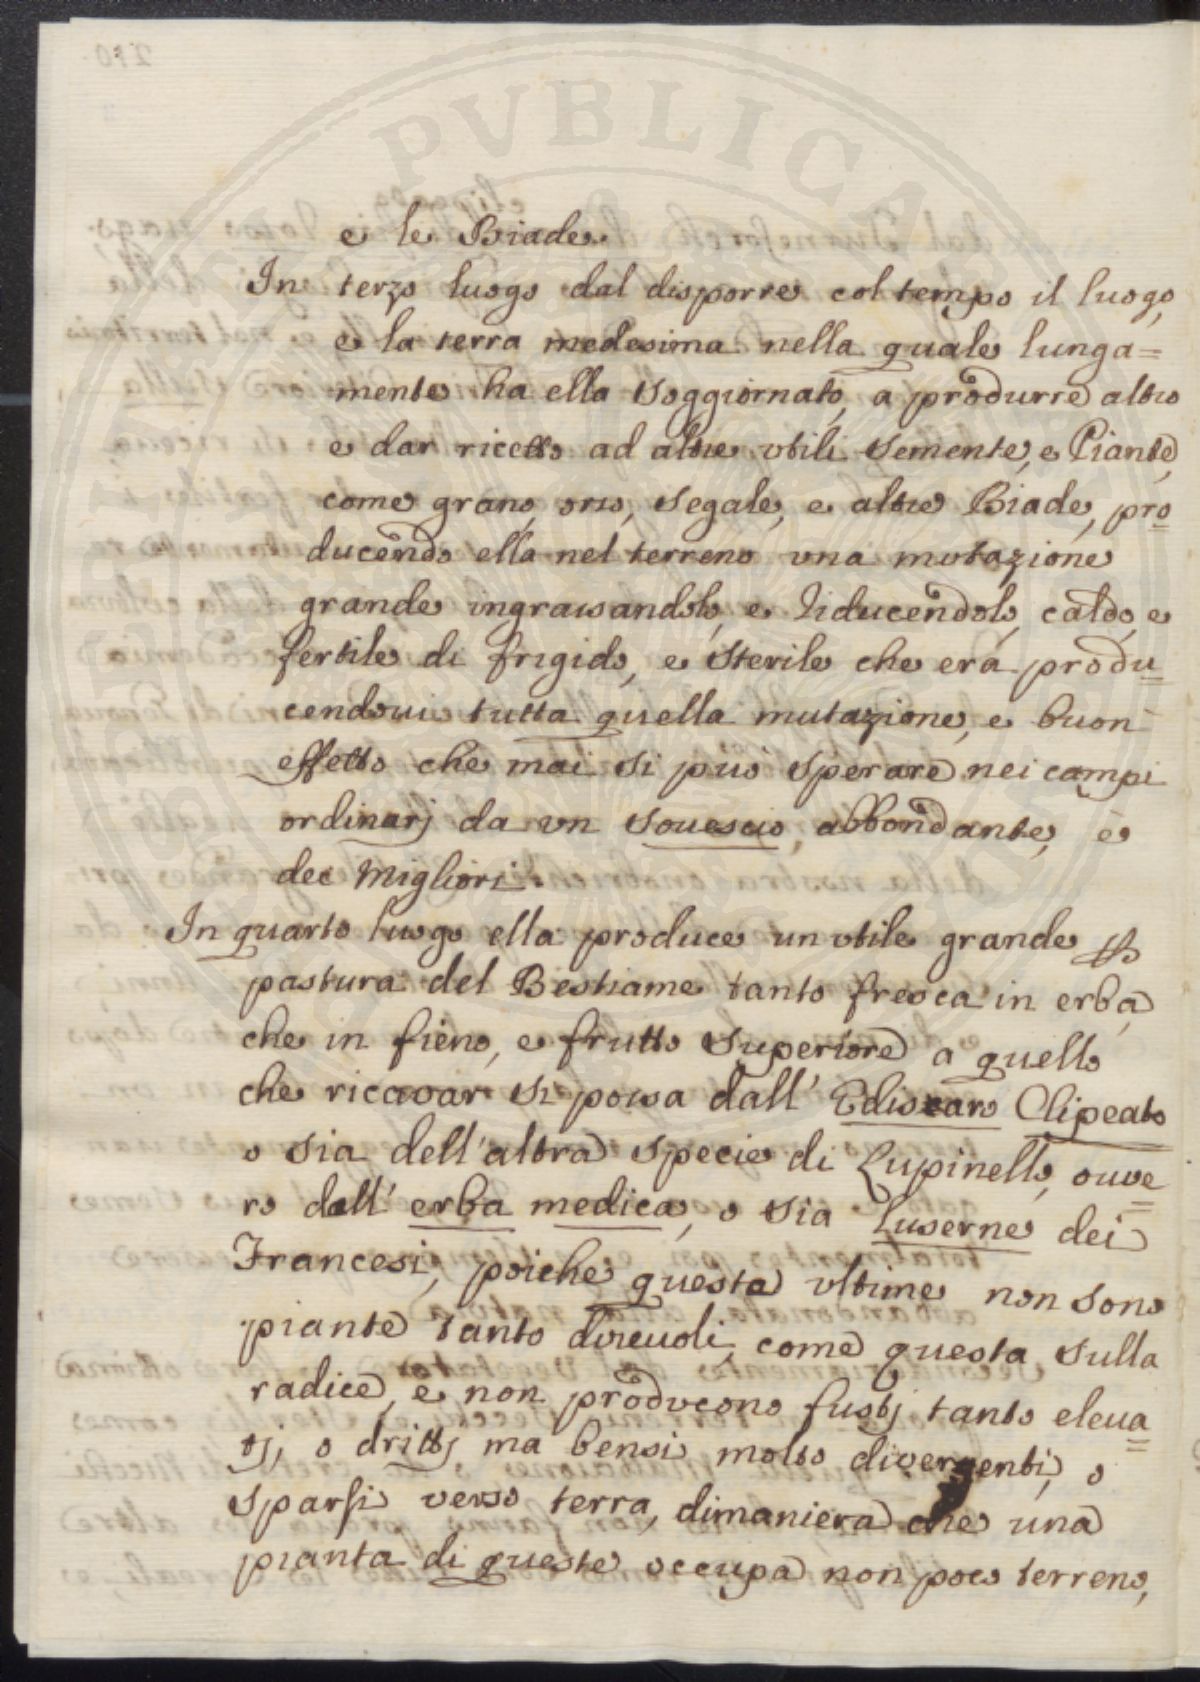 e le Biade.
In terzo luogo dal disporre col tempo il luogo,
e la terra medesima nella quale lunga=
mente ha ella soggiornato, a produrre altro
e dar ricetto ad altre vtili semente, e Piante,
come grano, orzo, segale, e altre Biade, pro
ducendo ella nel terreno vna mutazione
grande ingrassandolo, e riducendolo, caldo, e
fertile di frigido, e sterile che era produ=
cendoui tutta quella mutazione, e buon
effetto che mai si può sperare nei campi
ordinarj da vn souescio, abbondante, e
dei Migliori.
In quarto luogo ella produce un vtile grande p
pastura del Bestiame tanto fresca in erba,
che in fieno, e frutto superiore a quello
che riccavar si possa dall' Edisaro Clipeato
o sia dell'altra specie di Lupinello, ouue=
ro dall' erba medica, o sia Luserne dei
Francesi, poiche queste vltime non sono
piante tanto direuoli, come questa sulla
radice, e non producono fustj tanto eleua=
tj, o drittj ma bensi molto divergenti, o
sparsi verso terra, dimaniera che una
pianta di queste occupa non poco terreno,
PVBLICAE